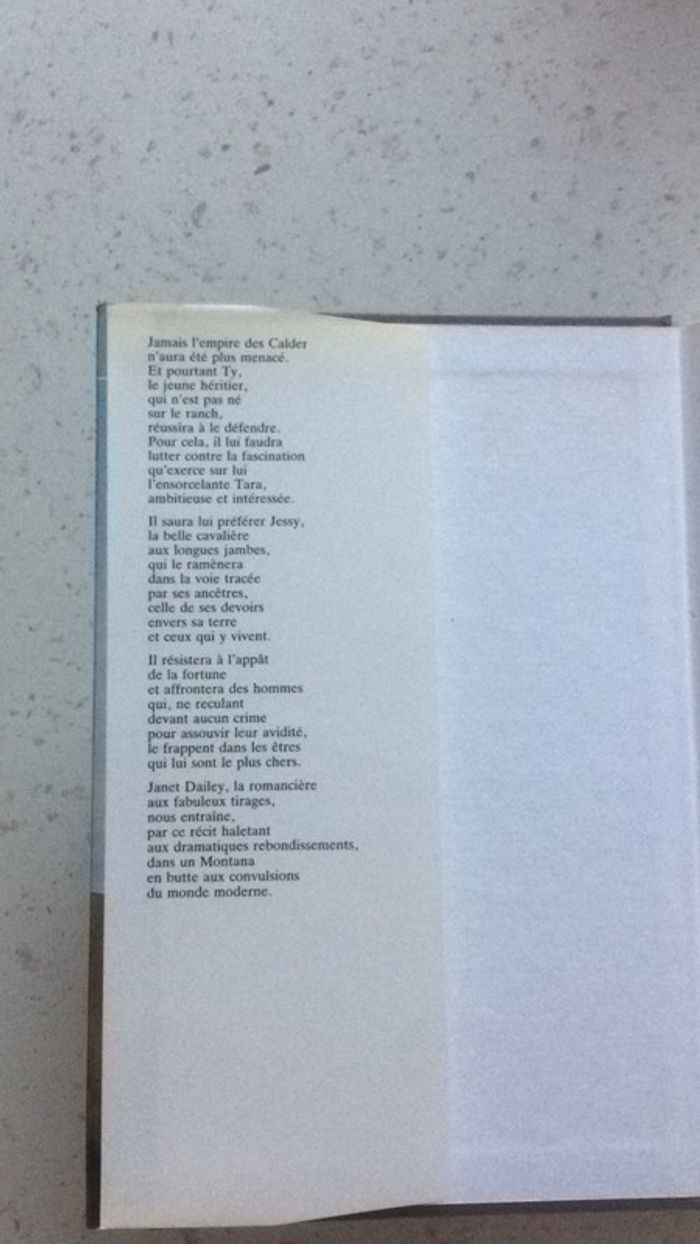 Jamais l'empire des Calder
n'aura été plus menacé.
Et pourtant Ty,
le jeune héritier,
qui n'est pas né
sur le ranch,
réussira à le défendre.
Pour cela, il lui faudra
lutter contre la fascination
qu'exerce sur lui
l'ensorcelante Tara,
ambitieuse et intéressée.
Il saura lui préférer Jessy,
la belle cavalière
aux longues jambes,
qui le ramènera
dans la voie tracée
par ses ancêtres,
celle de ses devoirs
envers sa terre
et ceux qui y vivent.
Il résistera à l'appât
de la fortune
et affrontera des hommes
qui, ne reculant
devant aucun crime
pour assouvir leur avidité,
le frappent dans les êtres
qui lui sont le plus chers.
Janet Dailey, la romancière
aux fabuleux tirages,
nous entraîne,
par ce récit haletant
aux dramatiques rebondissements,
dans un Montana
en butte aux convulsions
du monde moderne.